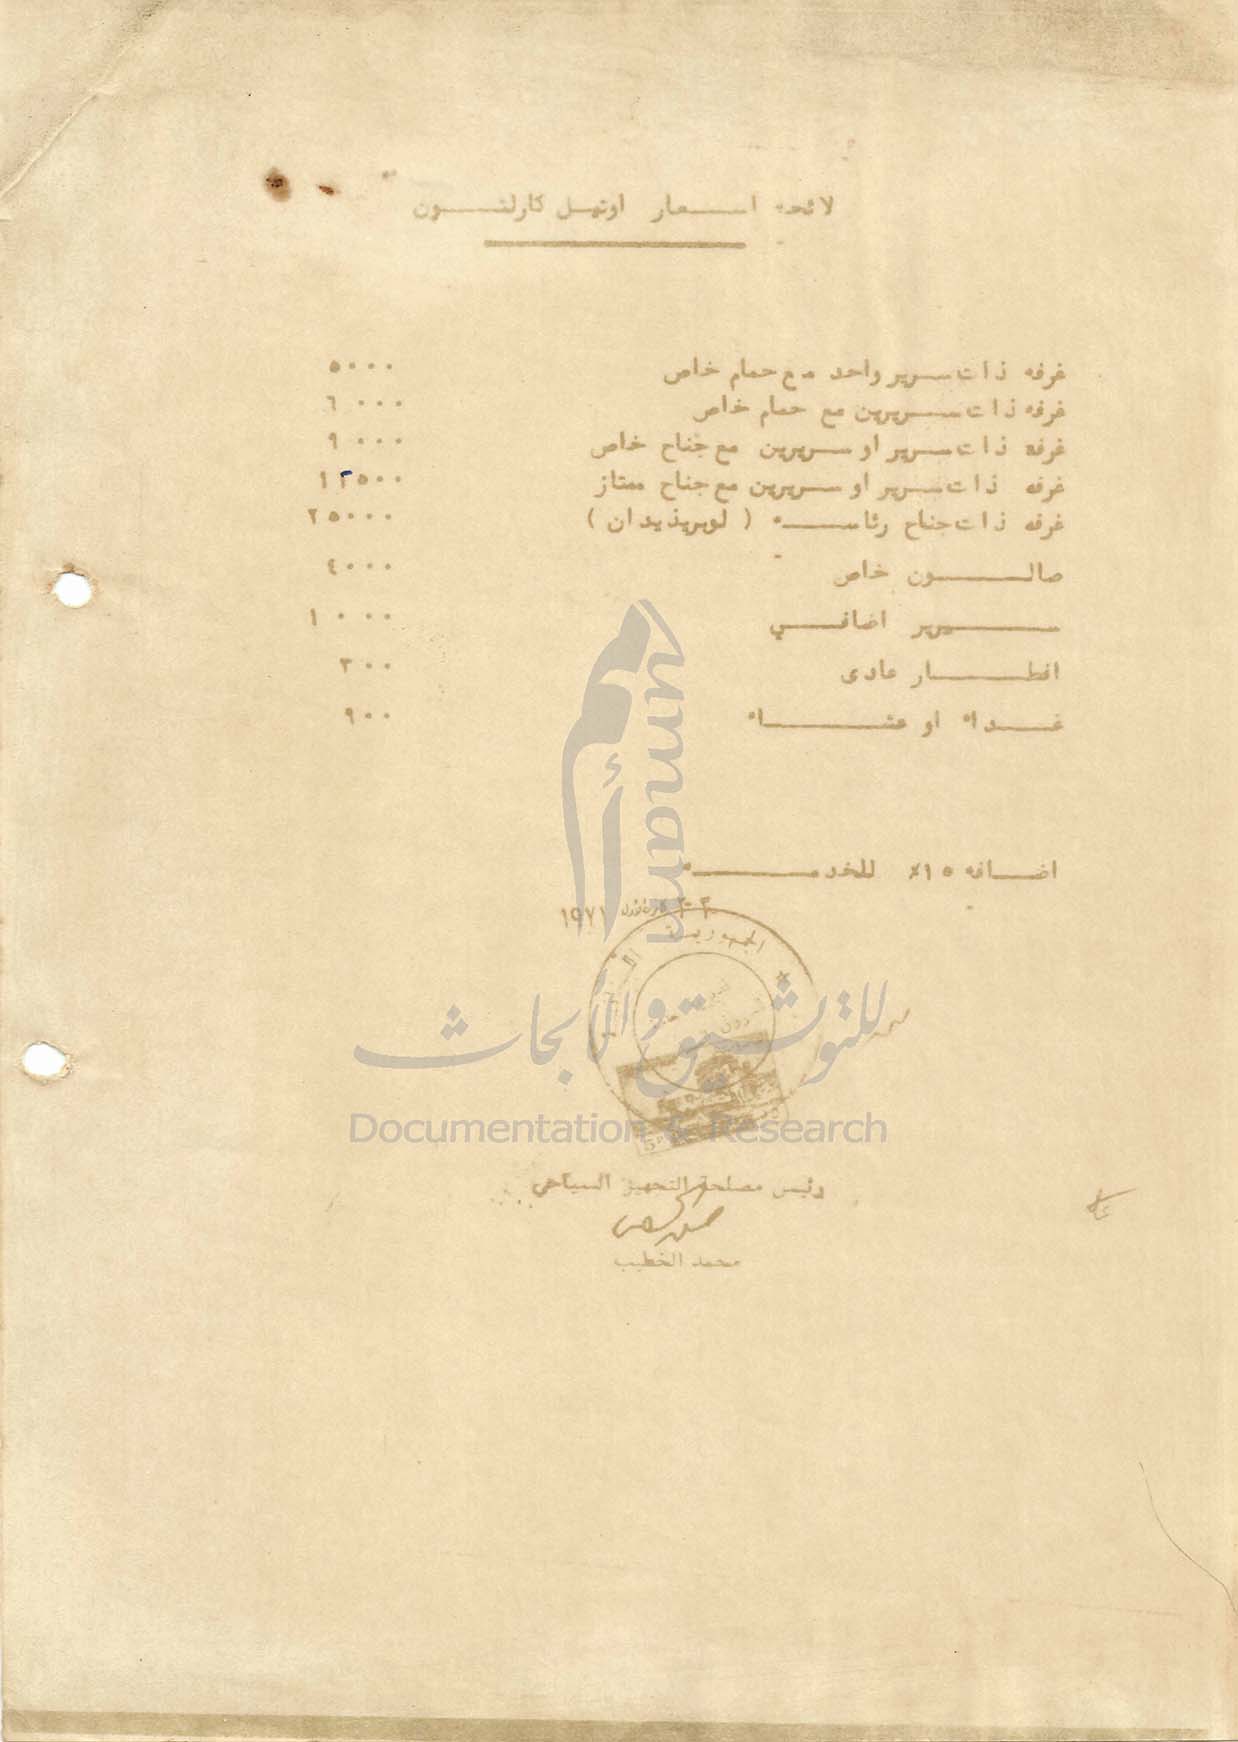 لائحه اسعار اوتيل كارلتون
غرفه ذات سرير واحد مع حمام خاص ٥٠٠٠
غرفه ذات سريرين مع حمام خاص ٦٠٠٠
غرفه ذات سرير او سريرين مع جناح خاص ٩٠٠٠
غرفه ذات سرير او سريرين مع جناح ممتاز ١٢٥٠٠
غرفه ذات جناح رئاسه ( لوبريذيدان ) ٢٥٠٠٠
صالون خاص ٤٠٠٠
سرير اضافي ١٠٠٠
افطار عادى ٣٠٠
غداء او عشاء ٩٠٠
اضافه ١٥٪ للخدمه
كانون الاول ١٩٧١
الجمهورية
أمم
umam
للتوثيق والأبحاث
Documentation & Research
رئيس مصلحة التجهيز السياحي
محمد الخطيب